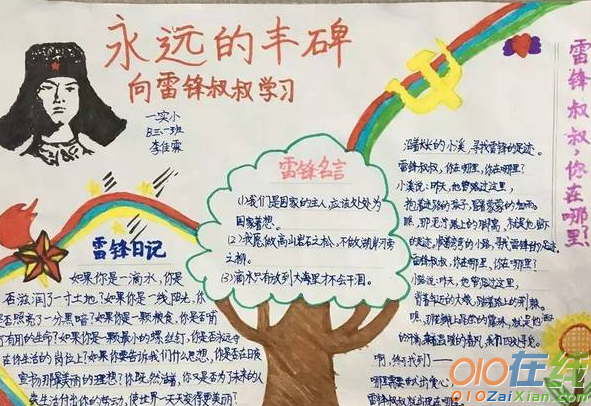 永远的丰碑
向雷锋叔叔学习
一实小
三.一班
李佳霖
雷锋名言
(1)我们是国家的主人,应该处处为
国家着想。
(2)我愿做高山岩石之松,不做湖岸河旁
之柳。
(3)滴水只有放到大海里才不会干涸。
雷锋日记
如果你是一滴水,你是
否滋润了一寸土地?如果你是一线阳光,你
是否照亮了一分黑暗?如果你是一颗粮食,你是否哺
有用的生命?如果你是一颗最小的螺丝钉,你是否永远守
在你生活的岗位上?如果你要告诉我们什么思想,你是否在日夜
宣扬那最美丽的理想?你既然活着,你又是否为了未来的人
类生活付出你的劳动,使世界一天天变得更美丽?
雷锋叔叔,你在哪里
沿着长长的小溪,寻找雷锋的足迹。
雷锋叔叔,你在哪里,你在哪里?
小溪说:昨天,他曾路过这里,
抱着迷路的孩子,冒着蒙蒙的细雨。
瞧,那泥泞路上的脚窝,就是他留下
的足迹。顺着弯弯的小路,寻找雷锋的足迹。
雷锋叔叔,你在哪里,你在哪里?
小路说:昨天,他曾路过这里,
背着年迈的大娘,踏着路上的荆棘。
瞧,那花瓣上晶莹的露珠,就是他洒
下的汗滴。
啊,终于找到了——
哪里需要献出爱心,
雷锋叔叔就出现在哪里。
010在线
010ZaiXian.com